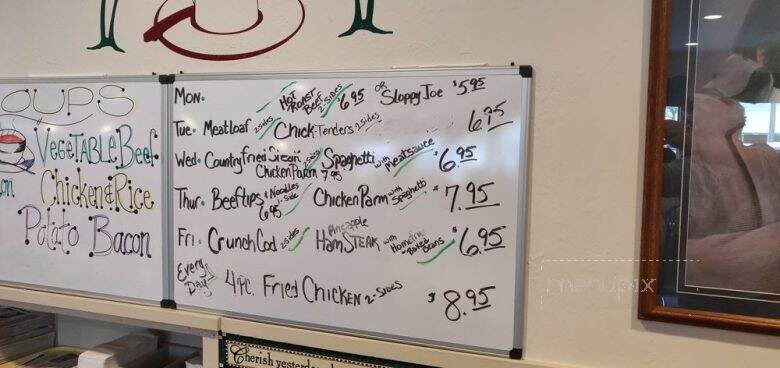 OUPS
VegeTABLE Beef
Chicken & Rice
Potato Bacon
Mon. Hot Roast Beef 2-Sides $6.95 OR Sloppy Joe $5.95
Tue. Meatloaf 2 sides Chick. Tenders 2 sides 6.95
Wed. Country Fried Steak 2 sides Spaghetti with Meatsauce $6.95
Chicken Parm 7.95
Thur. Beeftips & Noodles 1-Side 6.95 Chicken Parm with Spaghetti $7.95
Fri. Crunch Cod 2-sides Pineapple Ham STEAK with HomeTown "Baked" Beans $6.95
Every Day 4 PC. Fried Chicken 2-Sides $8.95
Cherish yesterday